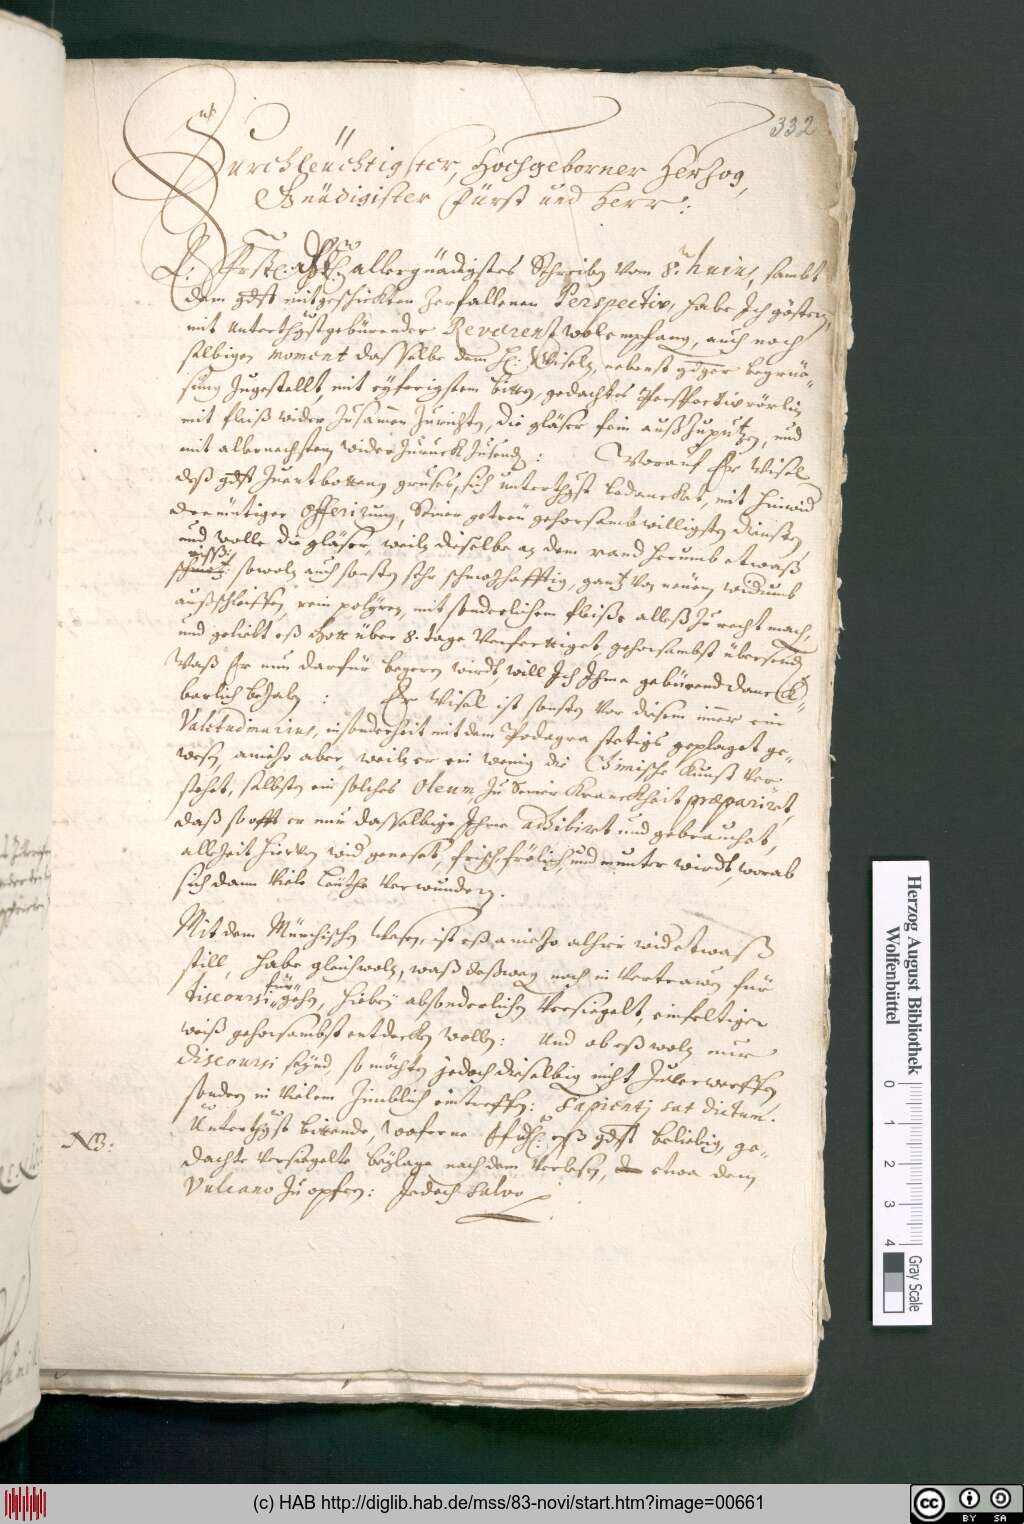 332
Durchleüchtigster, Hochgeborner Herzog,
Gnädigister Fürst und Herr:
E. Frstl. allergnädigstes Schreiben vom 8. huius, sambt
dem gdst mitgeschickten zerfallenen Perspectiv, habe Ich gestern,
mit Unterthgst gebürender Reverentz wol empfang, auch noch
selbigen moment dasselbe dem H. Wiseln, nebenst gdger begrüe-
sung zugestellt, mit eyferigstem bitten, gedachtes Perspectiv rörlin
mit fleiß wider zusamen zurichten, die gläser fein außzuputzen, und
mit allernechstem wider zuruck zusenden: Worauf Er Wisel
deß gdst zuentbottenen grusses, sich unterthgst bedancket, mit hinwid
demütiger Offerirung, Seiner getreu gehorsamb willigsten diensten,
und wolle die gläser, weiln dieselbe an dem rand herumb etwaß
rissig
sowoln auch sonsten sehr schadhafftig, gantz von neuem widerumb
außschleiffen, rein poliren, mit sonderlichem fleiß alles zu recht mach,
und geliebt es Gott über 8. tage verfertiget, gehorsambst übersend
Waß Er nun darfür begeren wirdt, will Ich Ihme gebürend danck-
barlich bezaln: Er Wisel ist sonsten vor diesem imer ein
Valetudinarius, insonderheit mit dem Podagra stetigs geplaget ge-
wesen, aniezo aber, weiln er ein wenig die Chimische Kunst ver-
stehet, selbsten ein solches Oleum, zu seiner Kranckheit præpariret,
daß so offt er nur dasselbige Ihme adhibiret und gebrauchet,
allezeit hierven wid geneset, frisch, frölich, und munter wirdt, worab
sich dann viele leuthe verwundern.
Mit dem Münchischen wesen, ist eß aniezo alhier wid etwaß
still, habe gleichwoln, waß deßweg noch in vertrawen für
für
discoursi gehen, hiebey absonderlichen versiegelt, einfeltiger
weiß gehorsambst entdecken wollen: Und ob eß woln nur
discoursi seynd, so möchten jedoch dieselbig nicht zuverwerffen,
sondern in vielem zimblich eintreffen: Sapienti sat dictum.
NB:
Unterthgst bittende, wofern eß gdst beliebig, ge-
dachte versiegelte beylage nach dem verlesen, etwa dem
Vulcano zu opfern: Jedoch salvo
Herzog August Bibliothek
Wolfenbüttel
0 1 2 3 4
Gray Scale
(c) HAB http://diglib.hab.de/mss/83-novi/start.htm?image=00661
cc BY SA